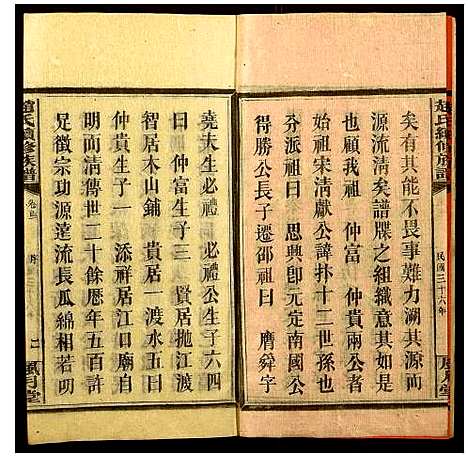 趙氏續修族譜
民國三十六年
風月堂
矣有其能不畏事難力溯其源而
源流清矣譜牒之組織意其如是
也顧我祖 仲富 仲貴兩公者
始祖宋清獻公諱抃十二世孫曰
分派祖曰 思興即元定南國公
得勝公長子遷邵祖曰 膺舜字
堯夫生必禮 必禮公生子六四
曰仲富生子三 賢居拋江渡
智居木山鋪 貴居一渡水五曰
仲貴生子一 添祥居江口廟自
明而清傳世二十餘歷年五百許
足徵宗功源遠流長瓜綿相若明
趙氏續修族譜
卷三
序
二
風月堂